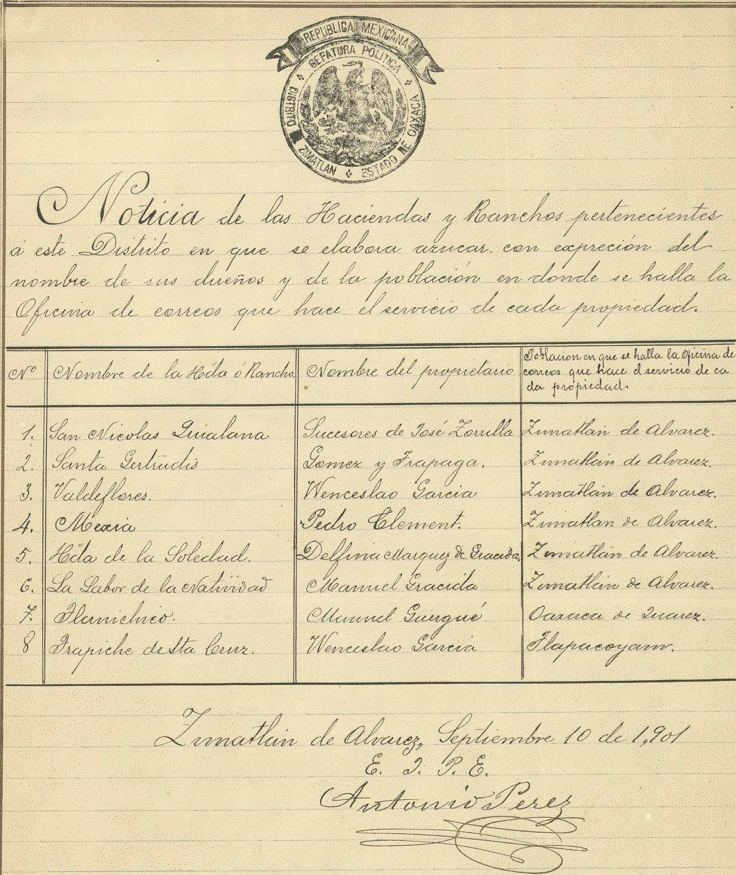 REPUBLICA MEXICANA
GEFATURA POLITICA
DISTRITO DE ZIMATLAN
ESTADO DE OAXACA
Noticia de las Haciendas y Ranchos pertenecientes
á este Distrito en que se elabora azucar con expreción del
nombre de sus dueños y de la población en donde se halla la
Oficina de correos que hace el servicio de cada propiedad.
No Nombre de la Hda ó Rancho. Nombre del propietario Poblacion en que se halla la Oficina de
correos que hace el servicio de ca
da propiedad.
1. San Nicolas Quialana Sucesores de José Zorrilla Zimatlán de Alvarez.
2. Santa Gertrudis Gomez y Trapaga. Zimatlán de Alvarez.
3. Valdeflores. Wenceslao Garcia Zimatlán de Alvarez.
4. Mexia Pedro Element. Zimatlan de Alvarez.
5. Hda de la Soledad. Delfina Marquez de Gracida. Zimatlán de Alvarez.
6. La Labor de la Natividad Manuel Gracida Zimatlán de Alvarez.
7. Tlanichico. Manuel Guergué Oaxaca de Juarez.
8 Trapiche de Sta Cruz. Wenceslao Garcia Tlapacoyam.
Zimatlán de Alvarez, Septiembre 10 de 1,901
E. J. P. E.
Antonio Perez